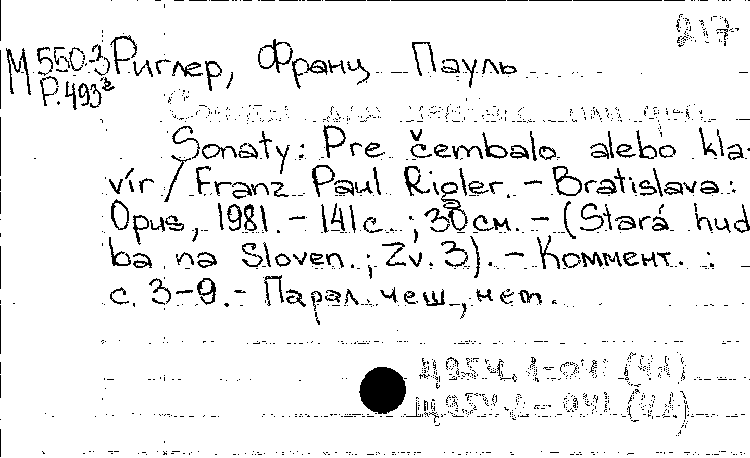 217
М 550-3 Риглер, Франц Пауль
Р.493
Сонаты для чембало или
Sonaty: Pre čembalo alebo kla-
vír / Franz Paul Rigler. – Bratislava:
Opus, 1981. – 141 с.; 30 см. – (Stará hud
ba na Sloven.; Zv. 3). – Коммент.:
с. 3–9. – Парал. чеш., нем.
Щ954.1-041 (41)
Щ954.2-041 (41)